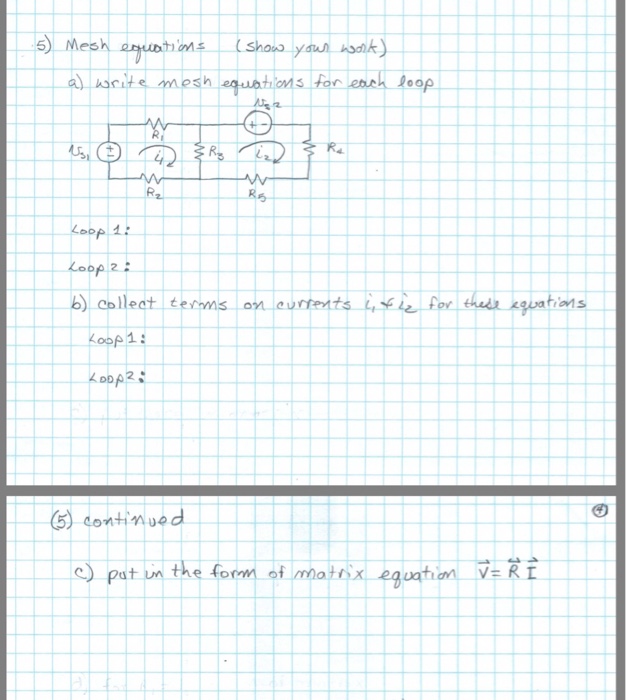 5) Mesh equations (show your work)
a) write mesh equations for each loop
Vs2
+ -
R1
Vs1
+
i1
R3
i2
R4
R2
R5
Loop 1:
Loop 2:
b) collect terms on currents i1 & i2 for these equations
Loop 1:
Loop 2:
(5) continued
4
c) put in the form of matrix equation V = R I